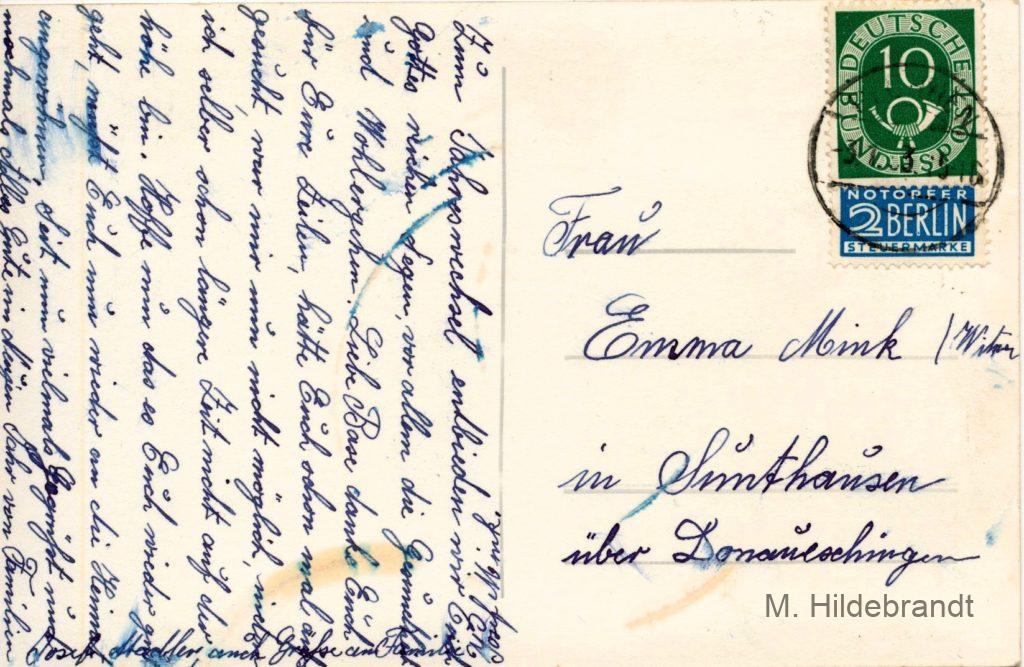 Zum Jahreswechsel entbieden wir Euch
Gottes reichen Segen, vor allem die Gesundheit
und Wohlergehen. Liebe Base danke Euch
für Eure Zeilen, hätte Euch schon mal auf
gesucht, war mir nun nicht möglich, indem
ich selber schon längere Zeit nicht auf der
höhe bin. Hoffe nun das es Euch wieder gut
geht, müßt Euch nun wieder an die Heimat
angewöhnen. Seit nun vilmals Gegrüßt und
nochmals Alles Gute im Jahr von Familien
Josef Stadler, auch Grüße an Familie
DEUTSCHE
BUNDESPOST
10
NOTOPFER
2 BERLIN
STEUERMARKE
Frau
Emma Mink (Witwe
in Sunthausen
über Donaueschingen
M. Hildebrandt